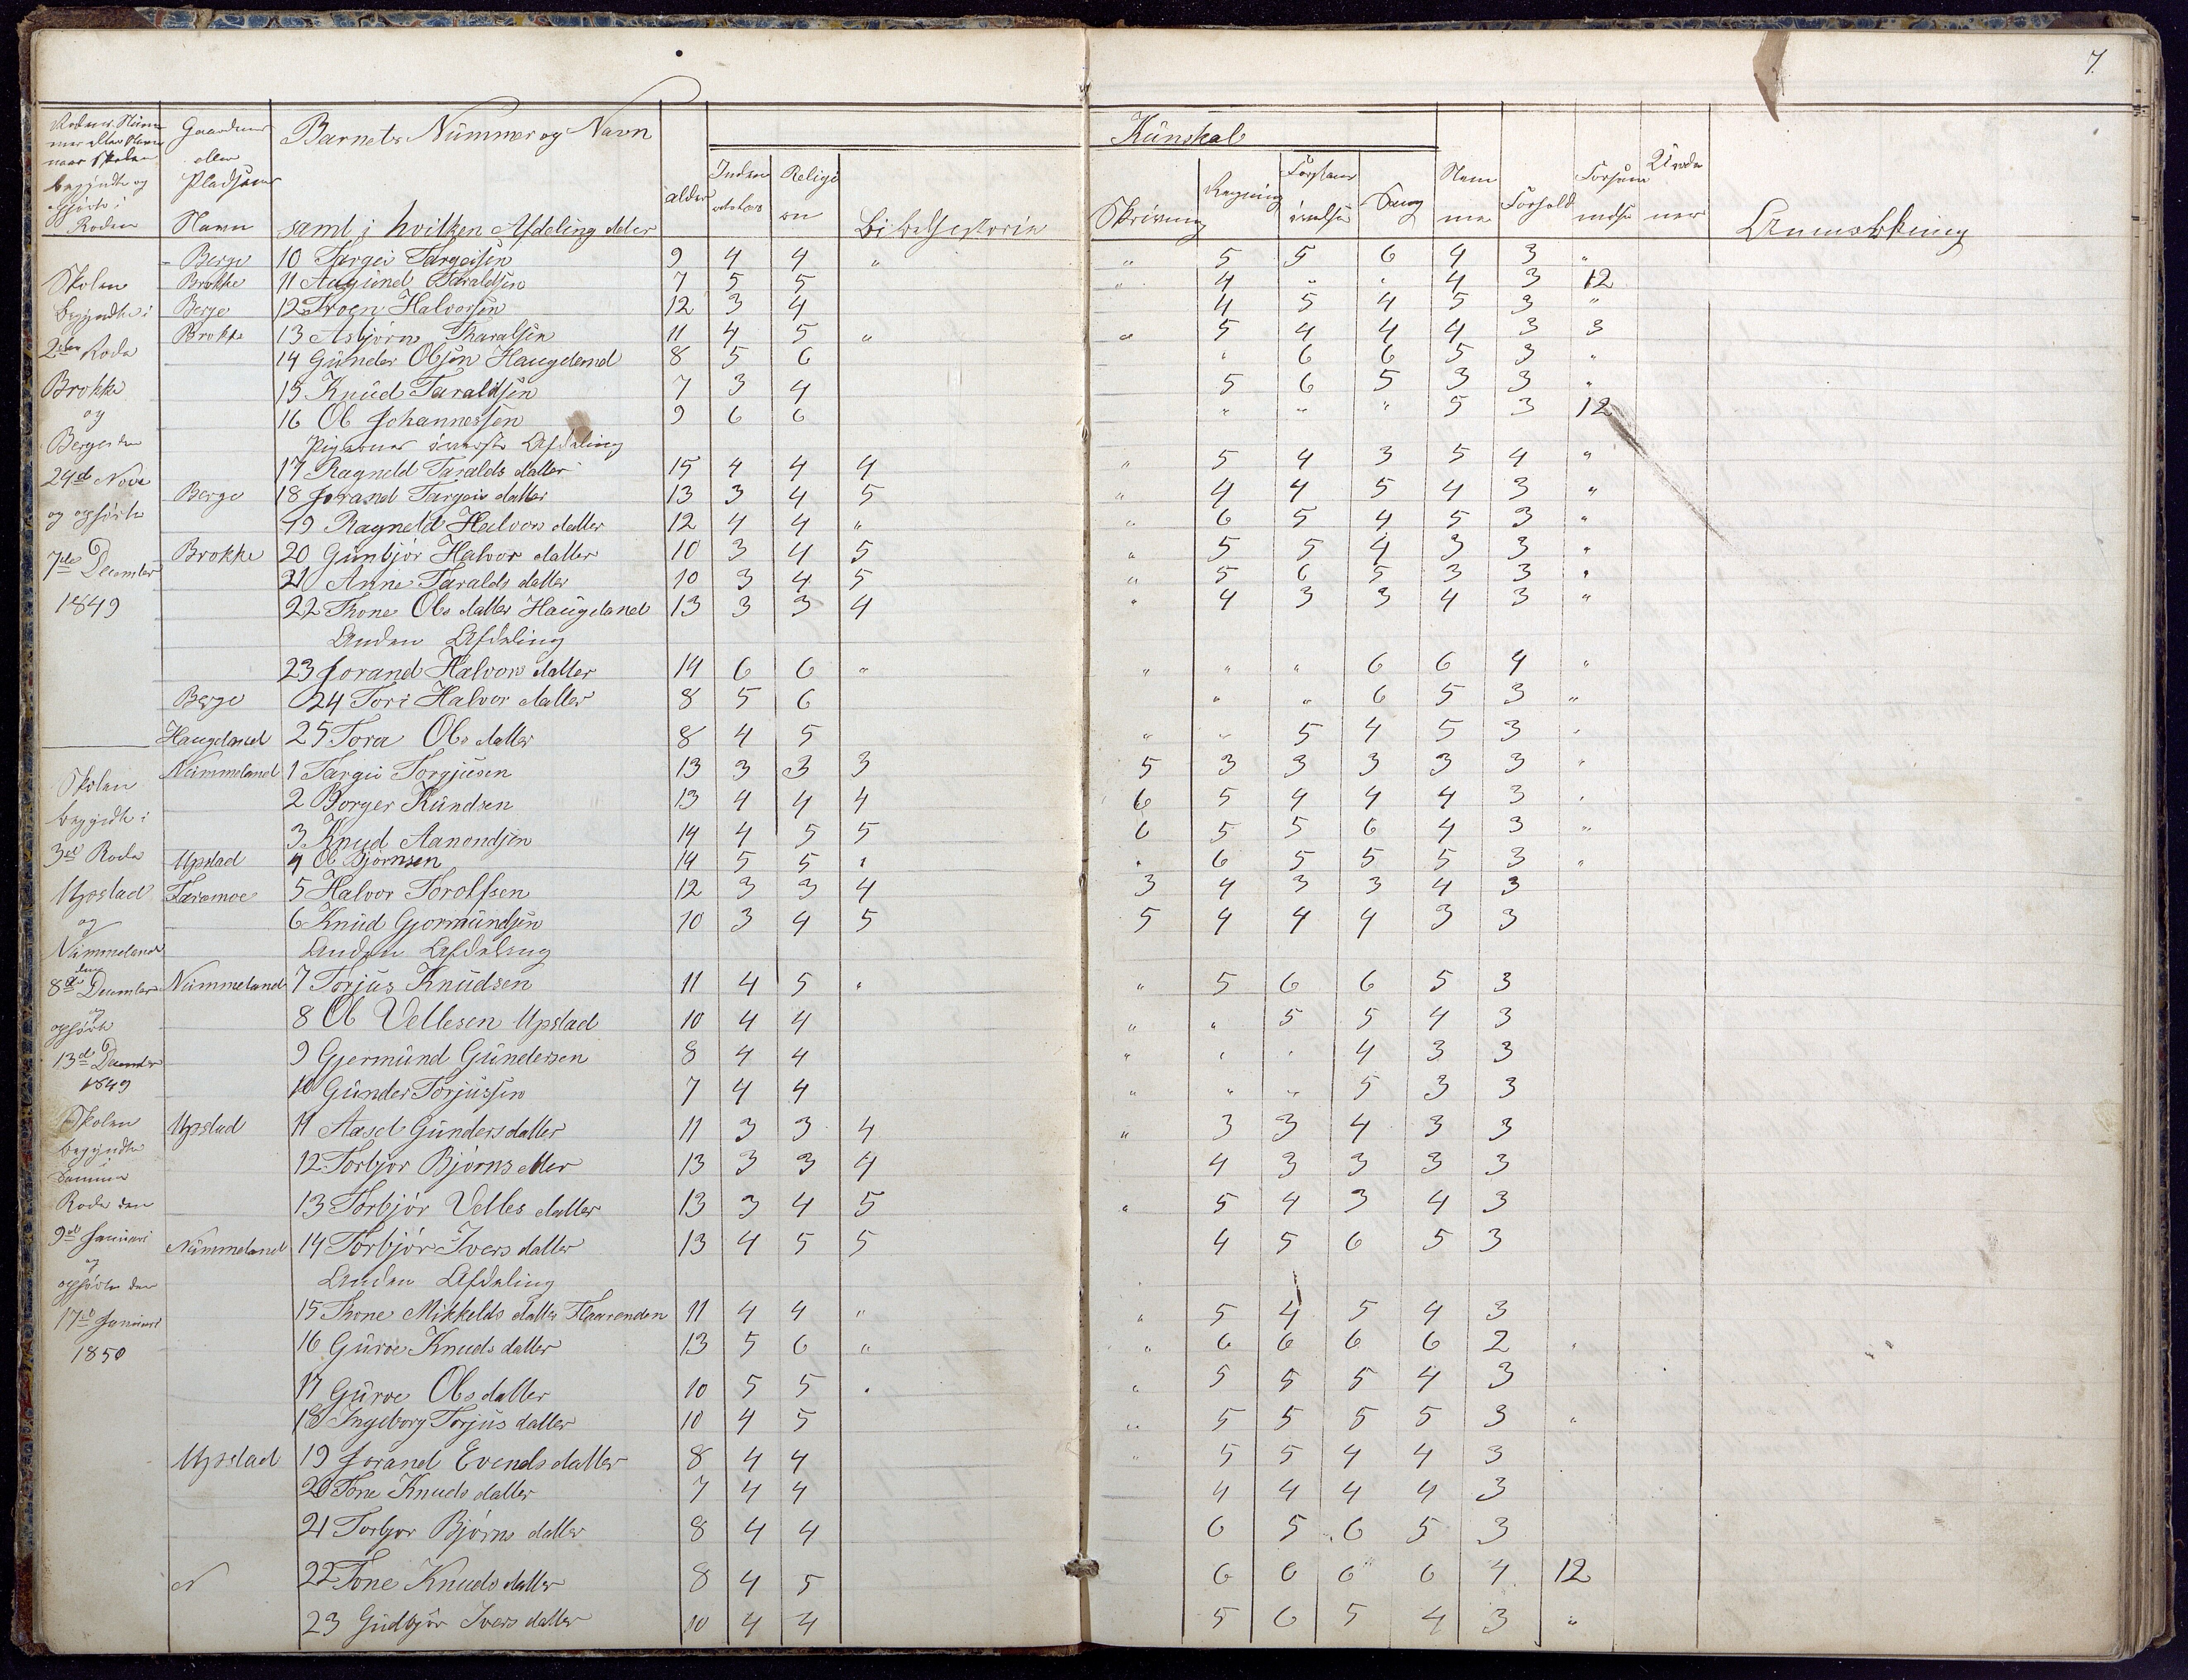 7.
Barnets Nummer og Navn
samt i hvilken Afdeling eller
Gaardens eller Pladsens Navn
alder
Religion
Bibelhistorie
Kunskab
Skrivning
Regning
Sang
Nemme
Forhold
Anmerkning
Skolen begyndte i 2den Rode Brokke og Berge den 29d Nove og ophørte 7de December 1849
Berge 10 Targei Targeisen 9 4 4 " " 5 5 6 4 3 "
Brokke 11 Aagund Taraldsen 7 5 5 " 4 " " 4 3 12
Berge 12 Troen Halvorsen 12 3 4 4 5 4 5 3 "
Brokke 13 Asbjørn Tharalsen 11 4 5 " " 5 4 4 4 3 3
14 Gunder Olsen Haugeland 8 5 6 " 6 6 5 3 "
15 Knud Taraldsen 7 3 4 5 6 5 3 3 "
16 Ol Johannessen 9 6 6 " " " 5 3 12
Pigernes øverste Afdeling
17 Ragneld Taralds datter 15 4 4 4 " 5 4 3 5 4 "
Berge 18 Jorand Targeis datter 13 3 4 5 " 4 4 5 4 3 "
19 Ragneld Halvors datter 12 4 4 " " 6 5 4 5 3 "
Brokke 20 Gunbjør Halvor datter 10 3 4 5 " 5 5 4 3 3 "
21 Anne Taralds datter 10 3 4 5 " 5 6 5 3 3 "
22 Thone Ols datter Haugeland 13 3 3 4 " 4 3 3 4 3 "
Anden Afdeling
23 Jorand Halvors datter 14 6 6 " " " " 6 6 4 "
Berge 24 Tori Halvor datter 8 5 6 " " 6 5 3 "
Haugeland 25 Tora Ols datter 8 4 5 " " 5 4 5 3 "
Skolen begyndte i 3de Rode Upstad og Nummeland den 8de December og ophørte 13de December 1849
Nummeland 1 Targei Torgjusen 13 3 3 3 5 3 3 3 3 3 "
2 Borger Kundsen 13 4 4 4 6 5 4 4 4 3 "
3 Knud Aanondsen 14 4 5 5 6 5 5 6 4 3 "
Upstad 4 Ol Bjørnsen 14 5 5 " " 6 5 5 5 3 "
Faremoe 5 Halvor Torolfsen 12 3 3 4 3 4 3 3 4 3
6 Knud Gjormundsen 10 3 4 5 5 4 4 4 3 3
Anden Afdeling
Nummeland 7 Torjus Knudsen 11 4 5 " " 5 6 6 5 3
8 Ol Vellesen Upstad 10 4 4 " " 5 5 4 3
9 Gjermund Gundersen 8 4 4 " " " 4 3 3
10 Gunder Torjussen 7 4 4 " " " 5 3 3
Skolen begyndte i Samme Rode den 9de Januari og ophørte den 17de Januari 1850
Upstad 11 Aasel Gunders datter 11 3 3 4 " 3 3 4 3 3
12 Torbjør Bjørns etter 13 3 3 4 4 3 3 3 3
13 Torbjør Velles datter 13 3 4 5 " 5 4 3 4 3
Nummeland 14 Torbjør Ivers datter 13 4 5 5 4 5 6 5 3
Anden Afdeling
15 Thone Mikkelds datter Flaarenden 11 4 4 " " 5 4 5 4 3
16 Guroe Knuds datter 13 5 6 " " 6 6 6 6 2 "
17 Guroe Ols datter 10 5 5 " " 5 5 5 4 3
18 Ingeborg Torjus datter 10 4 5 " 5 5 5 5 3 "
Upstad 19 Jorand Evends datter 8 4 4 " 5 5 4 4 3
20 Tone Knuds datter 7 4 4 4 4 4 4 3
21 Torbjor Bjørns datter 8 4 4 6 5 6 5 3
N 22 Tone Knuds datter 8 4 5 6 6 6 6 4 12
23 Gudbjør Ivers datter 10 4 4 5 6 5 4 3 "